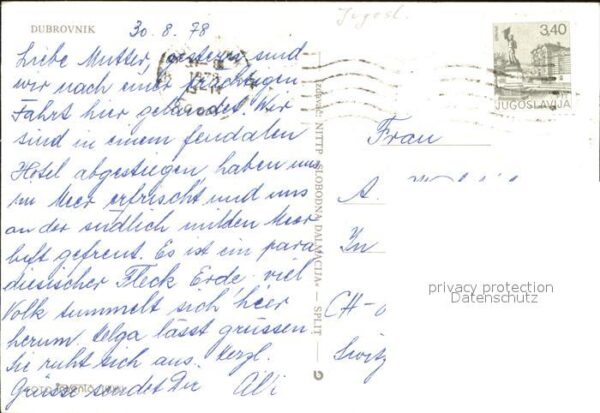 DUBROVNIK
30.8.78
Jugosl.
3,40
JUGOSLAVIJA
Liebe Mutter, gestern sind
wir nach einer
Fahrt hier gelandet. Wir
sind in einem feudalen
Hotel abgestiegen, haben uns
im Meer erfrischt und uns
an der südlich milden Meer
luft gefreut. Es ist ein para
diesischer Fleck Erde, viel
Volk tummelt sich hier
herum. Helga lässt grüssen
Sie ruht sich aus. Herzl.
Grüsse sendet Dir
NITTP »SLOBODNA DALMACIJA« — SPLIT —
Frau
A.
In
CH-
privacy protection
Datenschutz